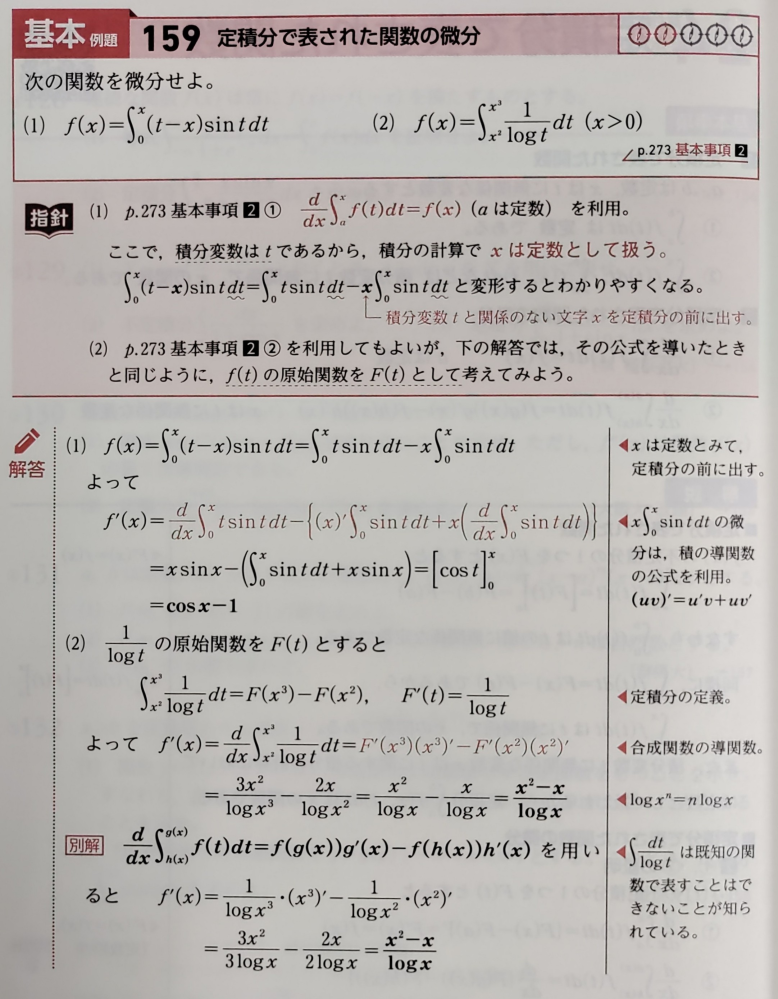 基本 例題 159 定積分で表された関数の微分
次の関数を微分せよ。
(1) f(x)=∫₀ˣ(t−x)sin t dt (2) f(x)=∫_{x²}^{x³} 1/log t dt (x>0)
p.273 基本事項 2
指針 (1) p.273 基本事項 2 ① d/dx ∫ₐˣ f(t)dt=f(x) (a は定数) を利用。
ここで，積分変数は t であるから，積分の計算で x は定数として扱う。
∫₀ˣ(t−x)sin t dt=∫₀ˣ t sin t dt−x∫₀ˣ sin t dt と変形するとわかりやすくなる。
積分変数 t と関係のない文字 x を定積分の前に出す。
(2) p.273 基本事項 2 ② を利用してもよいが，下の解答では，その公式を導いたとき
と同じように，f(t) の原始関数を F(t) として考えてみよう。
解答
(1) f(x)=∫₀ˣ(t−x)sin t dt=∫₀ˣ t sin t dt−x∫₀ˣ sin t dt
◀x は定数とみて，
定積分の前に出す。
よって
f′(x)=d/dx ∫₀ˣ t sin t dt−{(x)′∫₀ˣ sin t dt+x(d/dx ∫₀ˣ sin t dt)}
=x sin x−(∫₀ˣ sin t dt+x sin x)=[cos t]₀ˣ
=cos x−1
◀x∫₀ˣ sin t dt の微
分は，積の導関数
の公式を利用。
(uv)′=u′v+uv′
(2) 1/log t の原始関数を F(t) とすると
∫_{x²}^{x³} 1/log t dt=F(x³)−F(x²)， F′(t)=1/log t
◀定積分の定義。
よって f′(x)=d/dx ∫_{x²}^{x³} 1/log t dt=F′(x³)(x³)′−F′(x²)(x²)′
◀合成関数の導関数。
=3x²/log x³−2x/log x²=x²/log x−x/log x=(x²−x)/log x
◀log xⁿ=n log x
別解 d/dx ∫_{h(x)}^{g(x)} f(t)dt=f(g(x))g′(x)−f(h(x))h′(x) を用い
ると f′(x)=1/log x³·(x³)′−1/log x²·(x²)′
=3x²/3log x−2x/2log x=(x²−x)/log x
◀∫dt/log t は既知の関
数で表すことはで
きないことが知ら
れている。